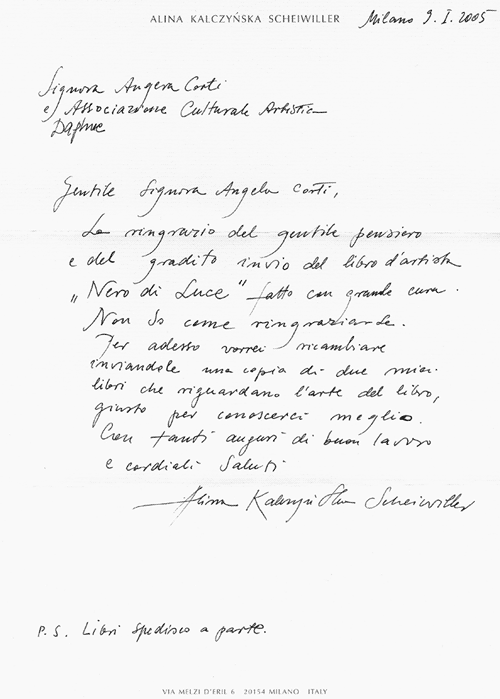 ALINA KALCZYŃSKA SCHEIWILLER
Milano 9.I.2005
Signora Angera Corti
e Associazione Culturale Artistica
Daphne
Gentile Signora Angela Corti,
La ringrazio del gentile pensiero
e del gradito invio del libro d'artista
„Nero di Luce" fatto con grande cura.
Non so come ringraziarLe.
Per adesso vorrei ricambiare
inviandole una copia di due miei
libri che riguardano l'arte del libro,
giusto per conoscerci meglio.
Con tanti auguri di buon lavoro
e cordiali saluti
Alina Kalczyńska Scheiwiller
P.S. Libri spedisco a parte.
VIA MELZI D'ERIL 6 20154 MILANO ITALY